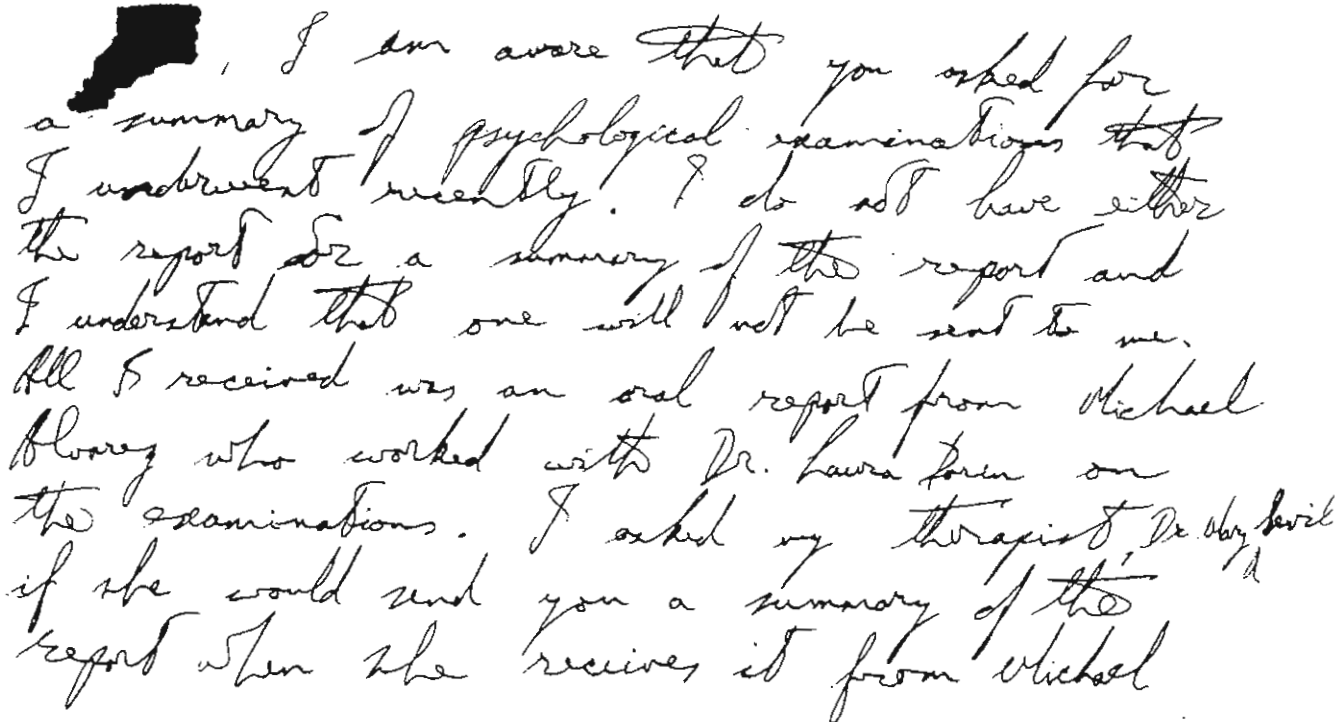 , I am aware that you asked for
a summary of psychological examinations that
I underwent recently. I do not have either
the report or a summary of the report and
I understand that one will not be sent to me.
All I received was an oral report from Michael
Alvarez who worked with Dr. Laura on
the examinations. I asked my therapist, Dr. Mary
if she would send you a summary of the
report when she receives it from Michael